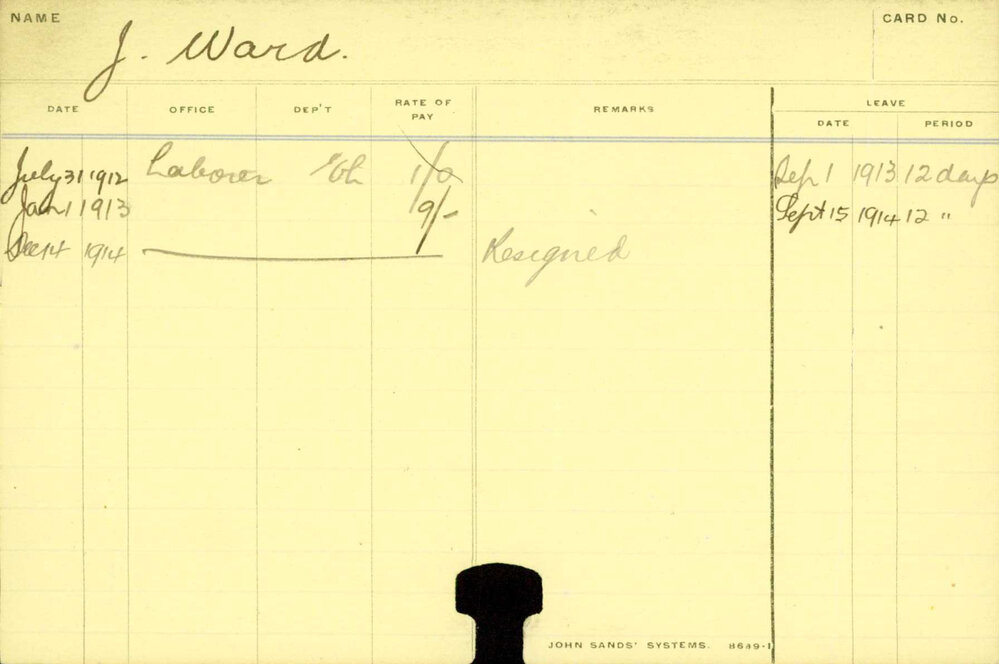 NAME
J. Ward.
CARD No.
DATE OFFICE DEP'T RATE OF PAY REMARKS LEAVE
DATE PERIOD
July 31 1912 Laborer Sep 1 1913 12 days
Jan 1 1913 9/- Sept 15 1914 12 "
Dec 14 1914 Resigned
JOHN SANDS' SYSTEMS.